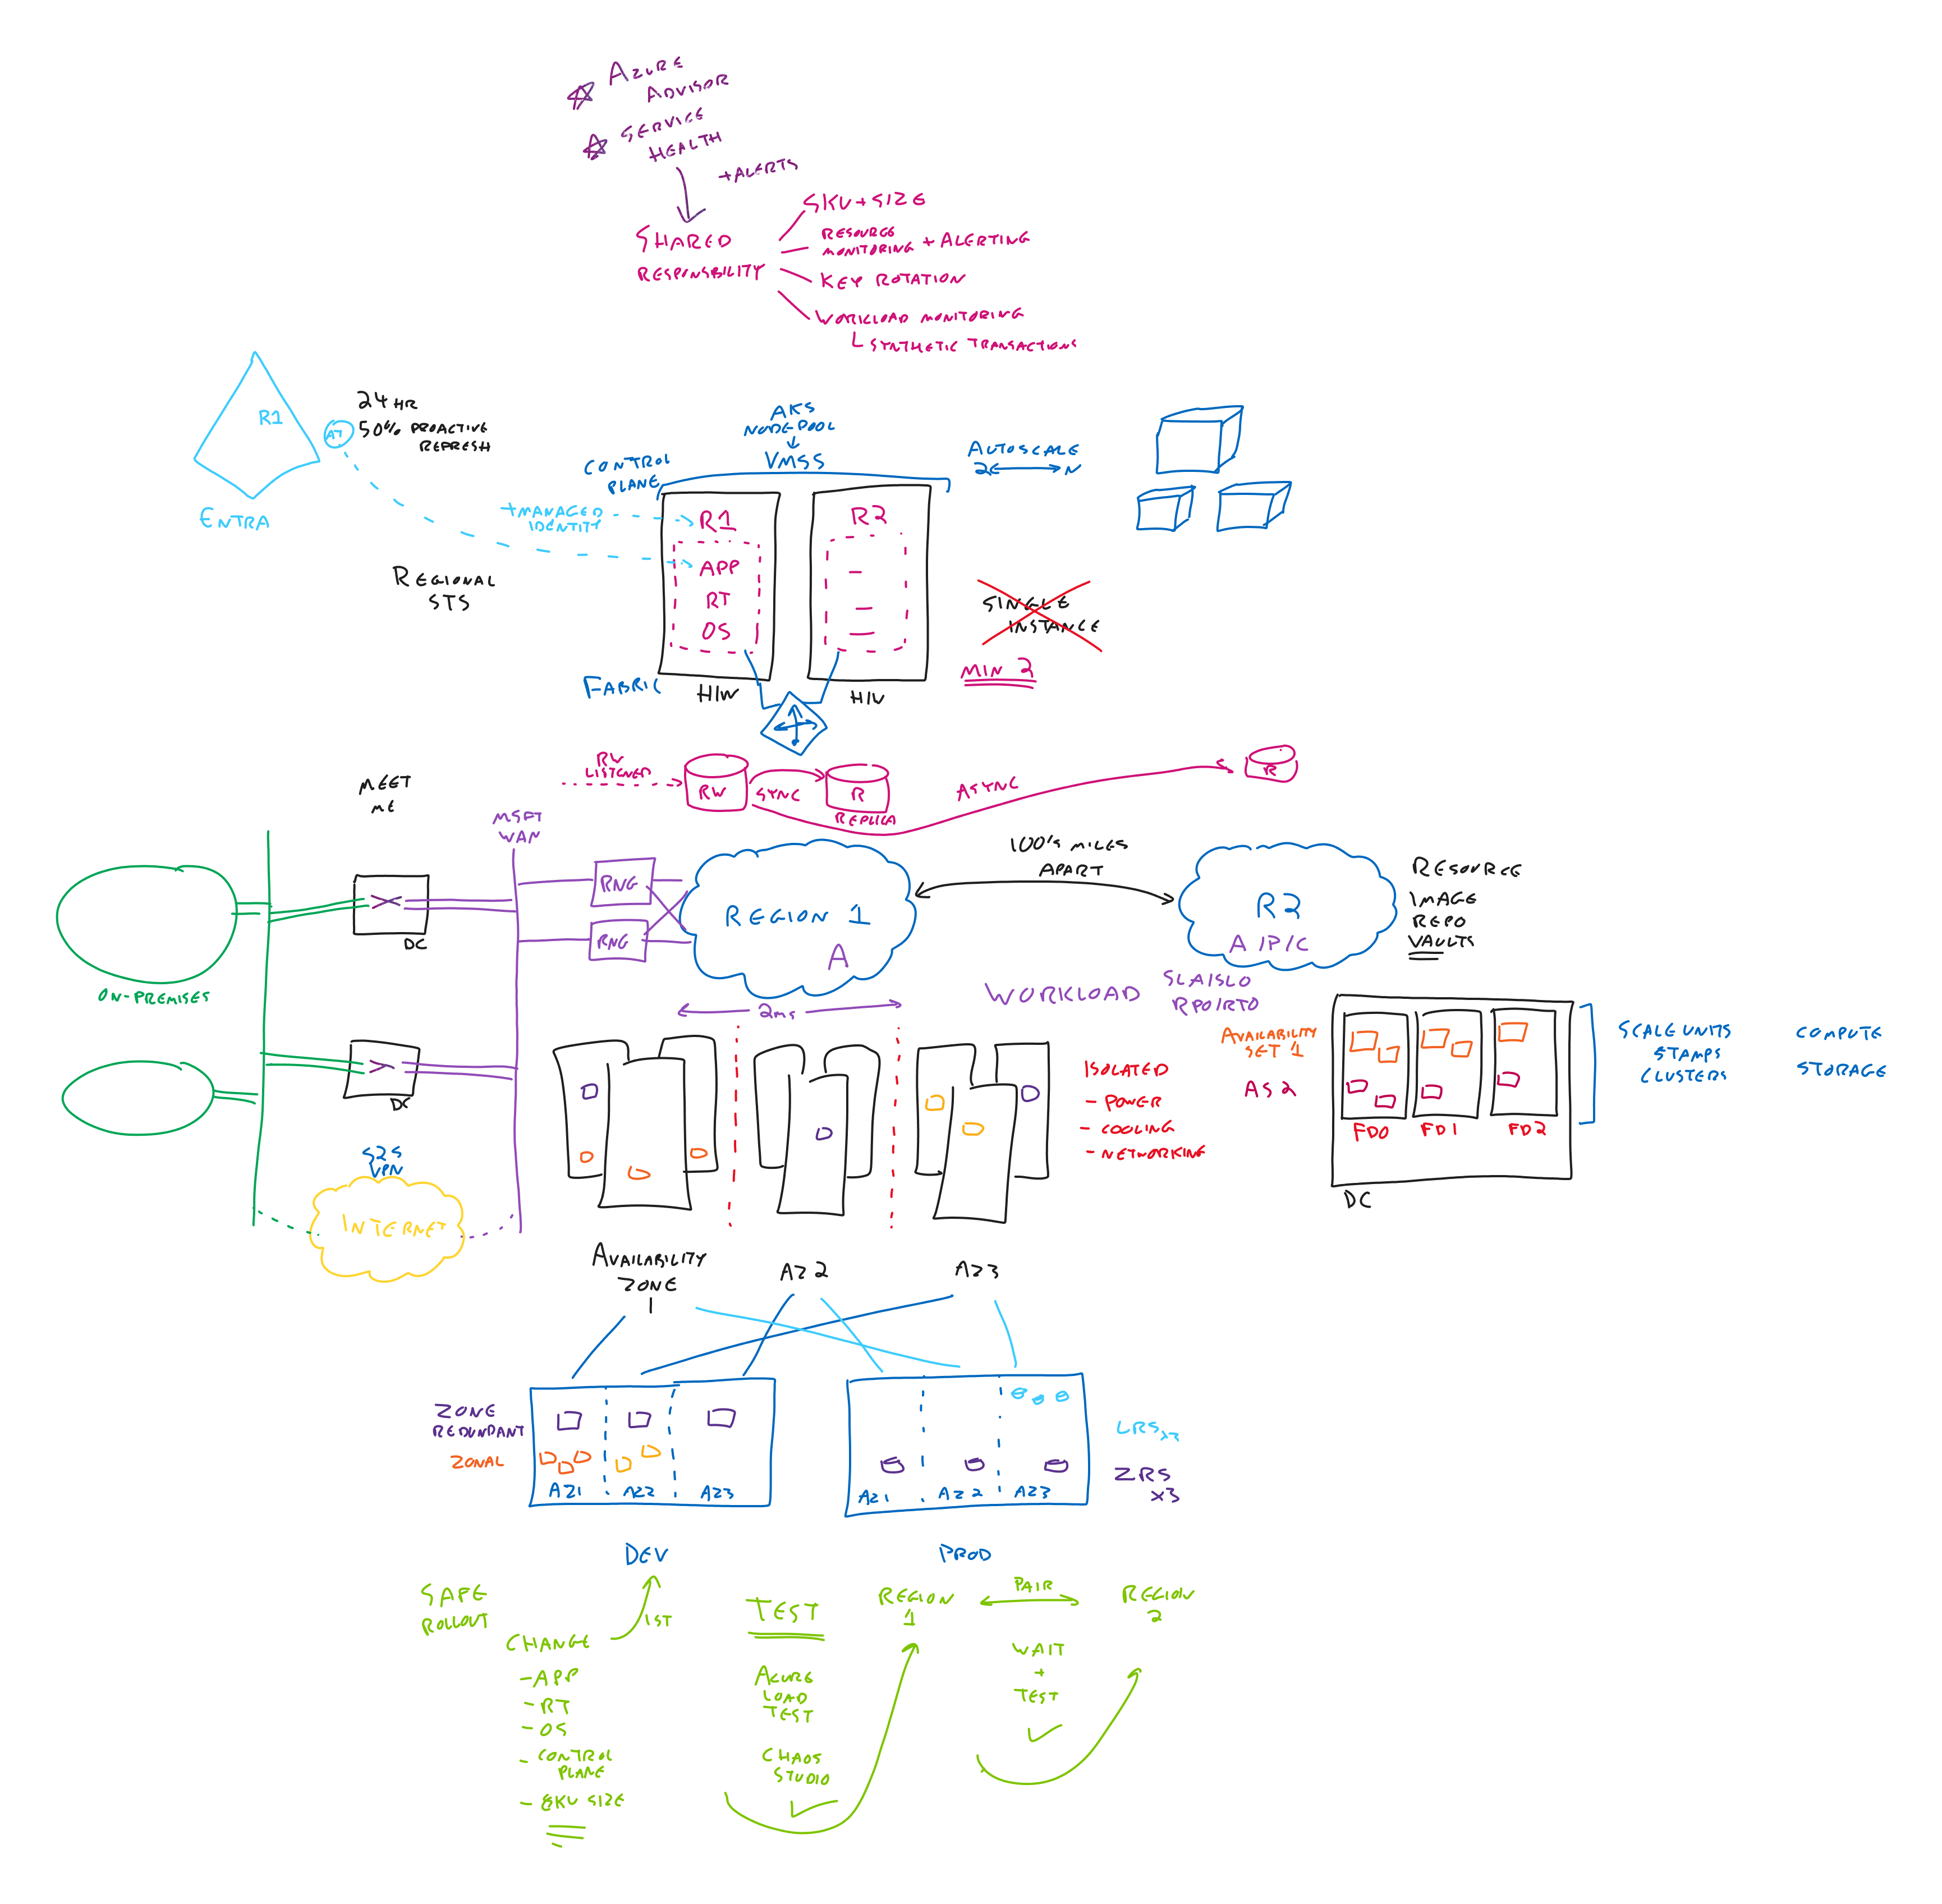 AZURE
ADVISOR
SERVICE
HEALTH
+ALERTS
SHARED
RESPONSBILITY
SKU+SIZE
RESOURCE
MONITORING + ALERTING
KEY ROTATION
WORKLOAD MONITORING
SYNTHETIC TRANSACTIONS
R1
ENTRA
AT
24 HR
50% PROACTIVE
REFRESH
REGIONAL
STS
+MANAGED
IDENTITY
AKS
NODEPOOL
VMSS
CONTROL
PLANE
AUTOSCALE
2 N
R1
APP
RT
OS
R2
FABRIC
H/W
H/W
SINGLE
INSTANCE
MIN 2
RW
LISTENER
RW
SYNC
R
REPLICA
ASYNC
R
MEET
ME
MSFT
WAN
ON-PREMISES
DC
DC
RNG
RNG
REGION 1
A
100's MILES
APART
R2
A/P/C
RESOURCE
IMAGE
REPO
VAULTS
2ms
WORKLOAD
SLA/SLO
RPO/RTO
ISOLATED
- POWER
- COOLING
- NETWORKING
AVAILABILITY
SET 1
AS2
FD0
FD1
FD2
DC
SCALE UNITS
STAMPS
CLUSTERS
COMPUTE
STORAGE
S2S
VPN
INTERNET
AVAILABILITY
ZONE
1
AZ2
AZ3
ZONE
REDUNDANT
ZONAL
AZ1
AZ2
AZ3
AZ1
AZ2
AZ3
LRS x3
ZRS
x3
DEV
PROD
SAFE
ROLLOUT
CHANGE
- APP
- RT
- OS
- CONTROL
PLANE
- SKU SIZE
1ST
TEST
AZURE
LOAD
TEST
CHAOS
STUDIO
REGION
1
PAIR
REGION
2
WAIT
+
TEST